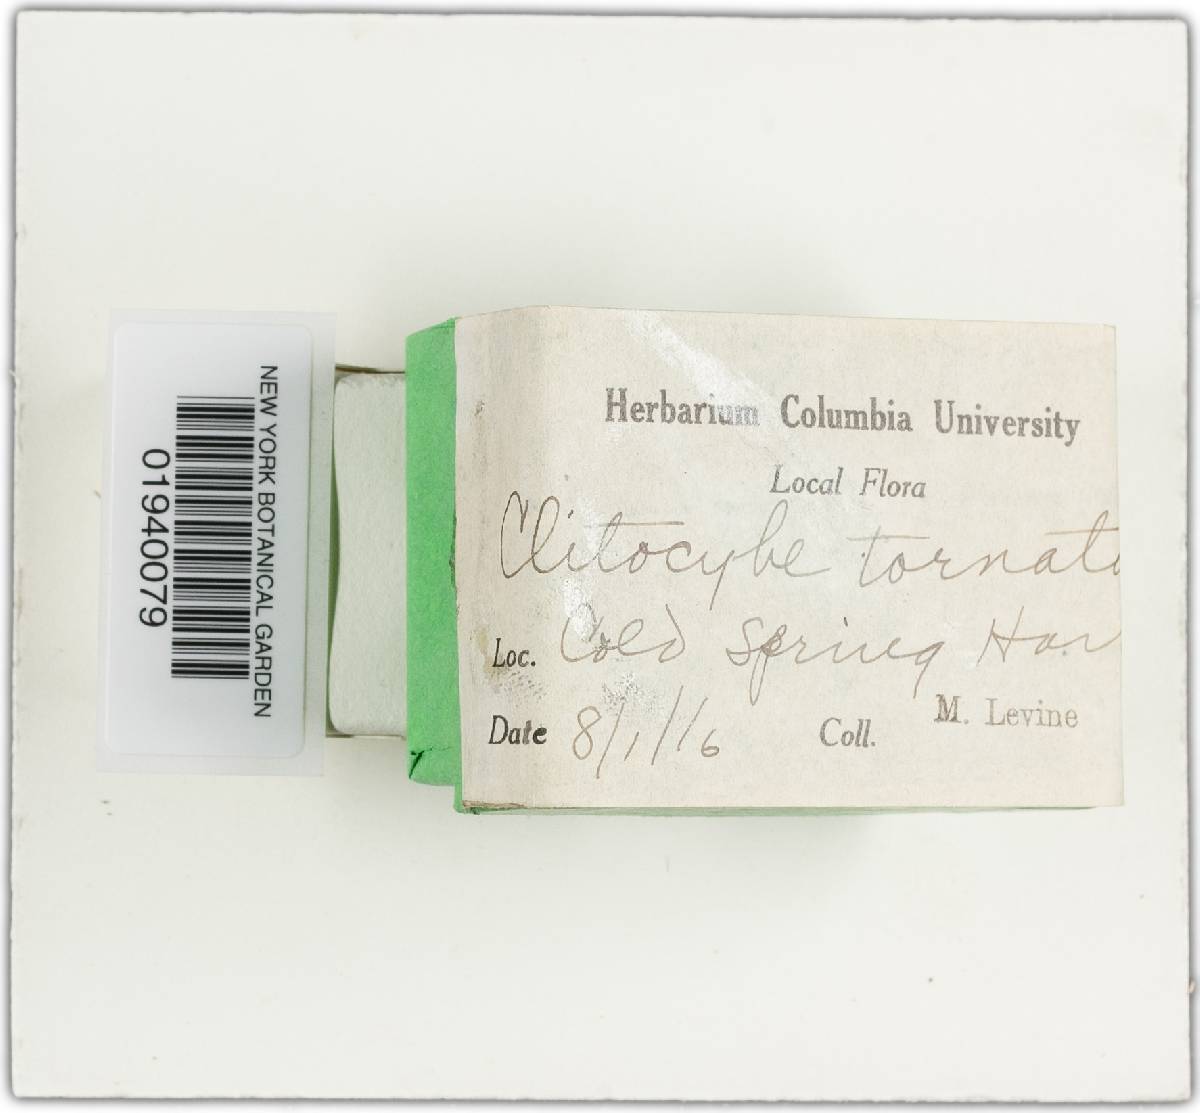 NEW YORK BOTANICAL GARDEN
01940079
Herbarium Columbia University
Local Flora
Clitocybe tornata
Loc. Cold Spring Har
Date 8/1/16 Coll. M. Levine